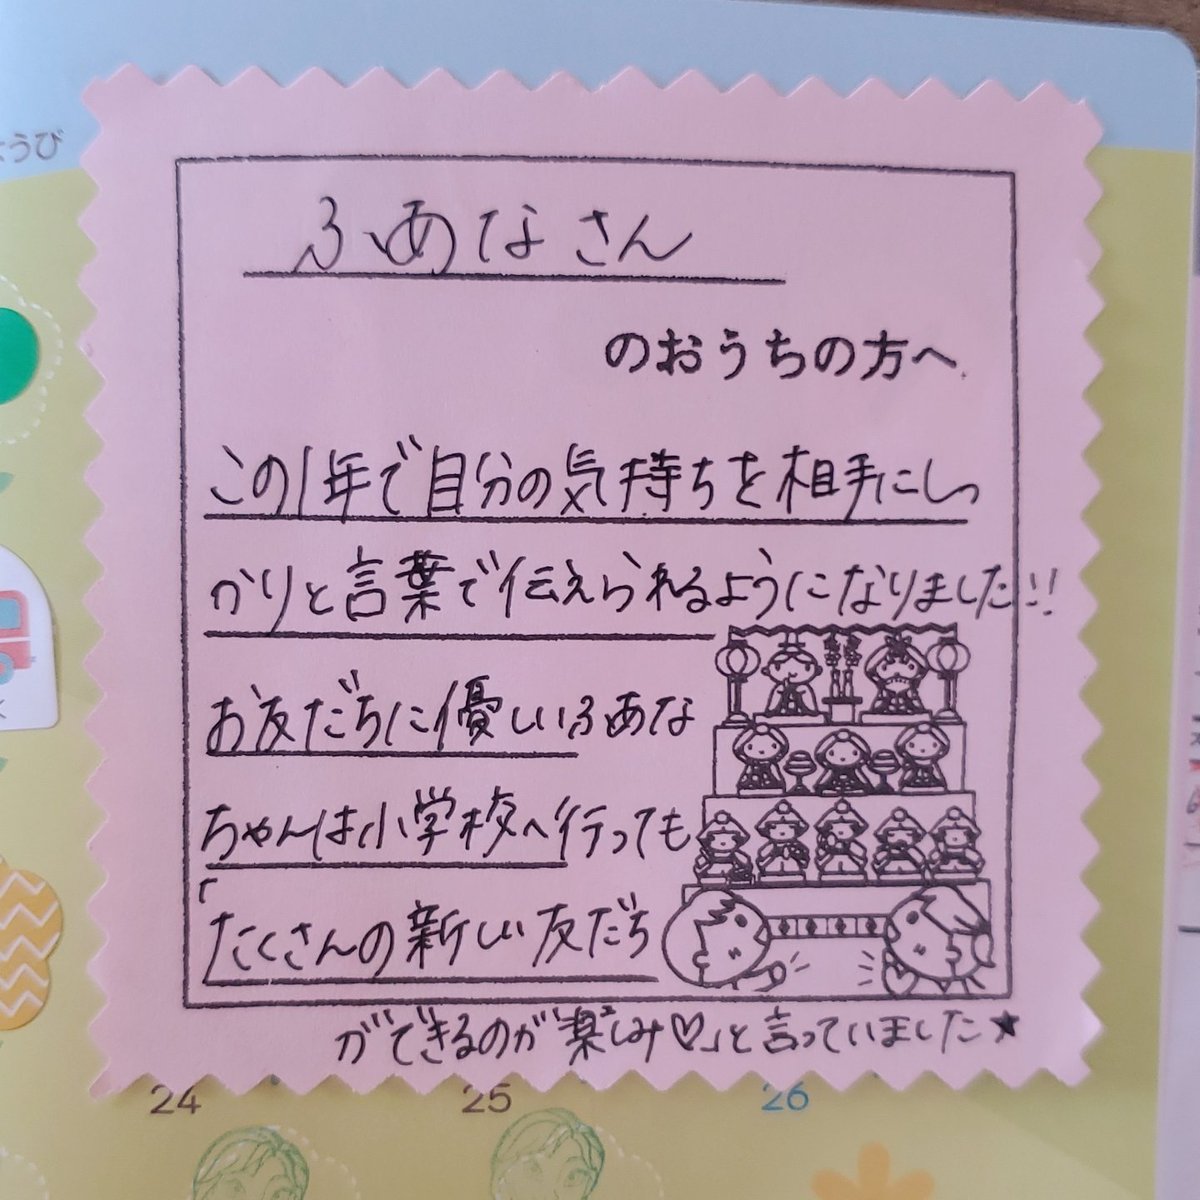 ようび
ふあなさん
のおうちの方へ
この1年で自分の気持ちを相手にしっ
かりと言葉で伝えられるようになりました!!
お友だちに優しいふあな
ちゃんは小学校へ行っても
「たくさんの新しい友だち
ができるのが楽しみ♡」と言っていました★
24 25 26
く